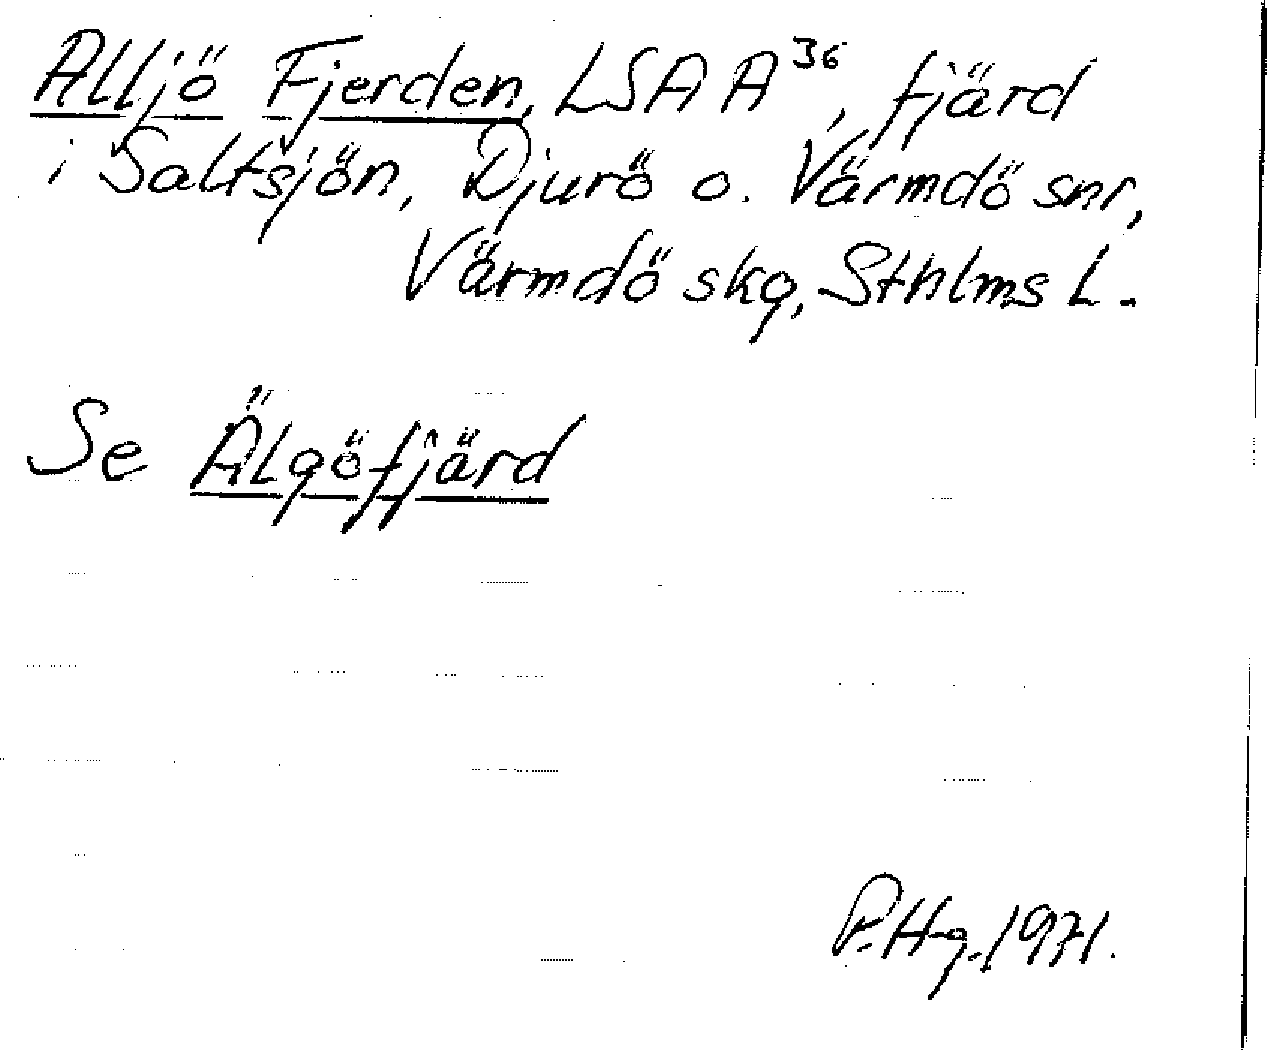 Alljö Fjerden, LSA A³⁶, fjärd
i Saltsjön, Djurö o. Värmdö snr,
Värmdö skg, Sthlms L.
Se Älgöfjärd
P.Hg. 1971.